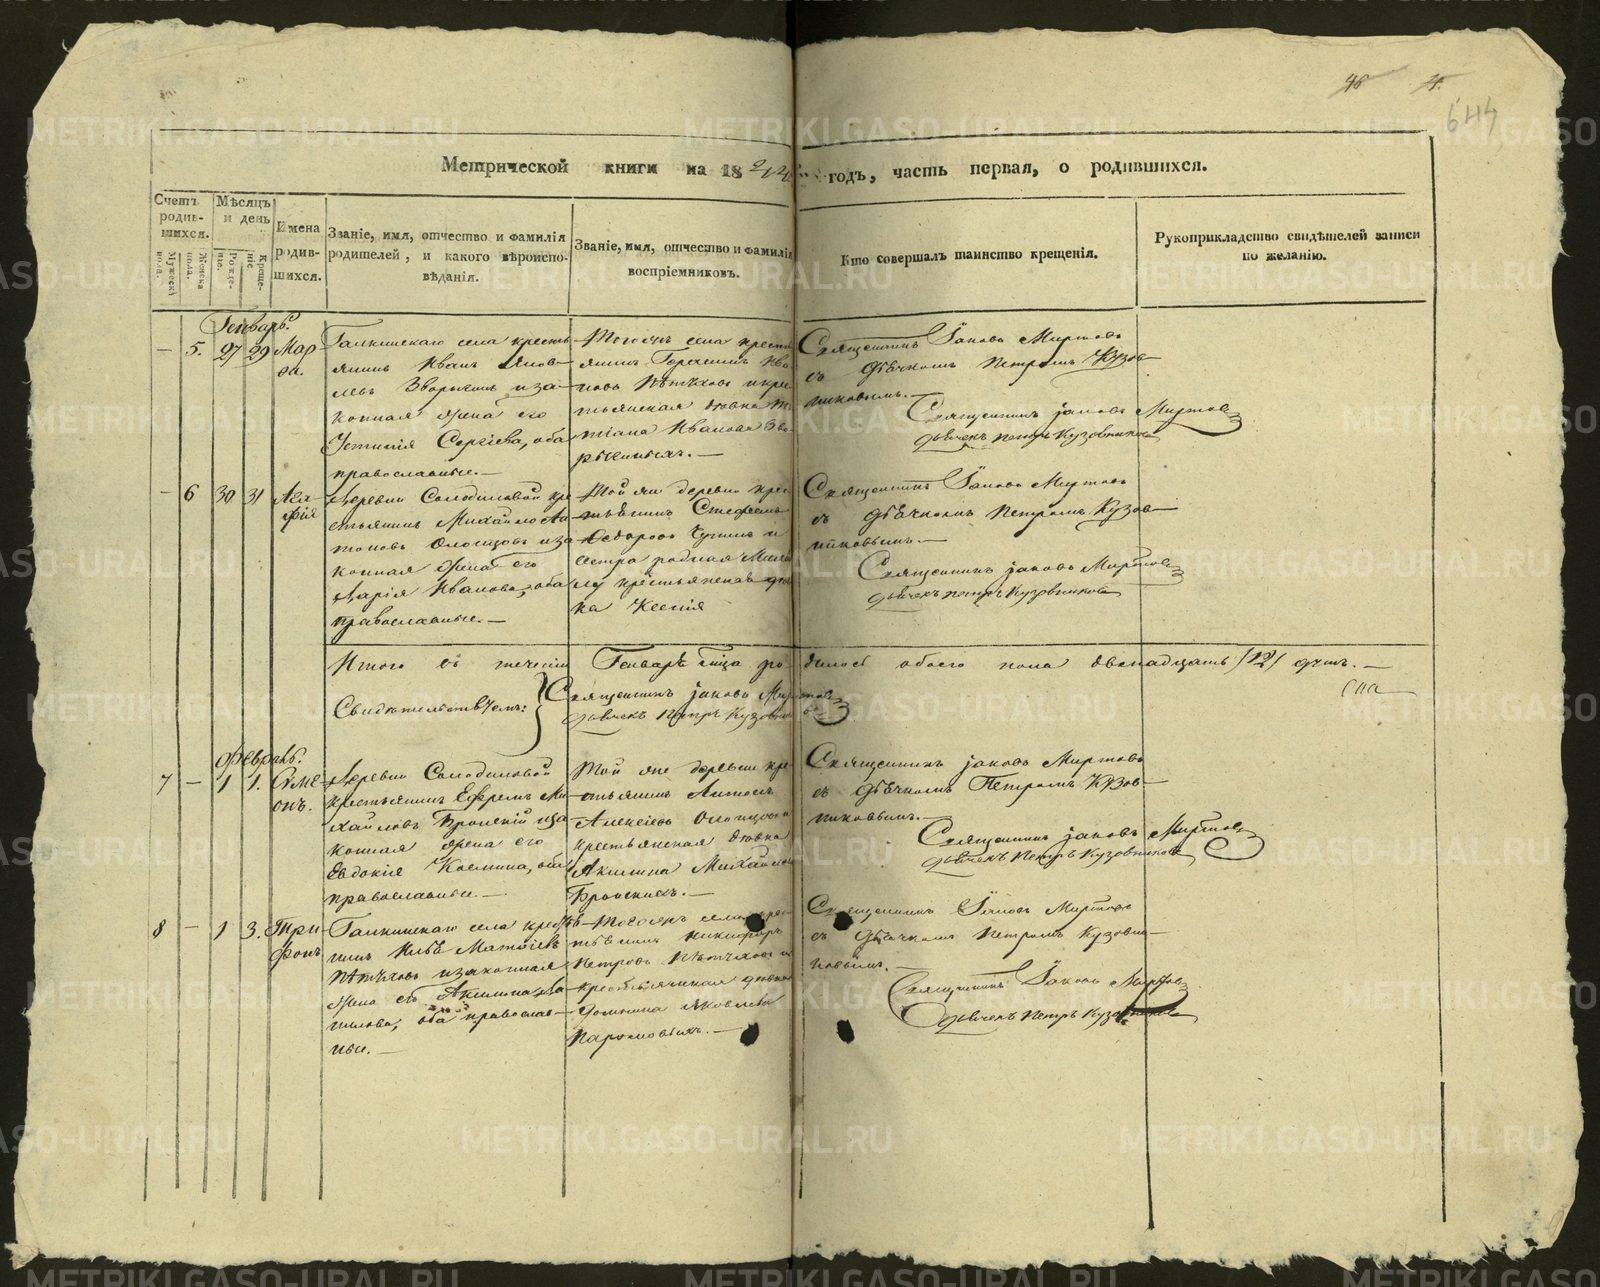 644
Метрической книги на 18 годъ, часть первая, о родившихся.
Счетъ родив-шихся.
Мужеска пола.
Женска пола.
Мѣсяцъ и день
Рожде-ніе.
Креще-ніе.
Имена родив-шихся.
Званіе, имя, отчество и фамилія
родителей, и какого вѣроиспо-
вѣданія.
Званіе, имя, отчество и фамилія
воспріемниковъ.
Кто совершалъ таинство крещенія.
Рукоприкладство свидѣтелей записи
по желанію.
Генварь.
— 5. 27 29 Мар-
ѳа.
Галкинскаго села кресть-
янинъ Иванъ Яков-
левъ Зворыгинъ и за-
конная жена его
Устинія Сергіева, оба
православные.—
Тогожъ села кресть-
янинъ Ива-
новъ Пѣтуховъ и кре-
стьянская дѣвка Та-
тіана Иванова Зво-
рыгиныхъ.—
Священникъ Іаковъ Миртовъ
съ Дьячкомъ Петромъ Кузов-
никовымъ.—
Священникъ Іаковъ Миртовъ
Дьячекъ Петръ Кузовниковъ
— 6 30 31
Деревни Солодиловой кре-
стьянинъ Михайло Ан-
тоновъ и за-
конная жена его
Дарія Иванова, оба
православные.—
Той же деревни крес-
тьянинъ Стефанъ
Ѳедоровъ и
сестра родная
крестьянская дѣв-
ка Ксенія
Священникъ Іаковъ Миртовъ
съ Дьячкомъ Петромъ Кузов-
никовымъ.—
Священникъ Іаковъ Миртовъ
Дьячекъ Петръ Кузовниковъ
Итого въ теченіи Генваря м-ца ро-дилось обоего пола двенадцать /12/ душъ.—
Свидѣтельствуемъ: Священникъ Іаковъ Миртовъ
Дьячекъ Петръ Кузовниковъ
Февраль.
7 — 1 1. Симе-
онъ.
Деревни Солодиловой
крестьянинъ Ефремъ Ми-
хайловъ Бронскій и за-
конная жена его
Евдокія Космина, оба
православные.—
Той же деревни кре-
стьянинъ Антонъ
Алексѣевъ
крестьянская дѣвка
Акилина Михайлова
Бронскихъ.—
Священникъ Іаковъ Миртовъ
съ Дьячкомъ Петромъ Кузов-
никовымъ.—
Священникъ Іаковъ Миртовъ
Дьячекъ Петръ Кузовниковъ
8 — 1 3. Три-
фонъ
Галкинскаго села кресть-
нинъ Матѳіевъ
Пѣтуховъ и законная
жена его Акилина Да-
нилова, оба православ-
ные.—
Тогожъ села крес-
тьянинъ Никифоръ
Петровъ Пѣтуховъ и
крестьянская дѣвка
Домнина Яковлева
Священникъ Іаковъ Миртовъ
съ Дьячкомъ Петромъ Кузовни-
ковымъ.—
Священникъ Іаковъ Миртовъ
Дьячекъ Петръ Кузовниковъ
METRIKI.GASO-URAL.RU